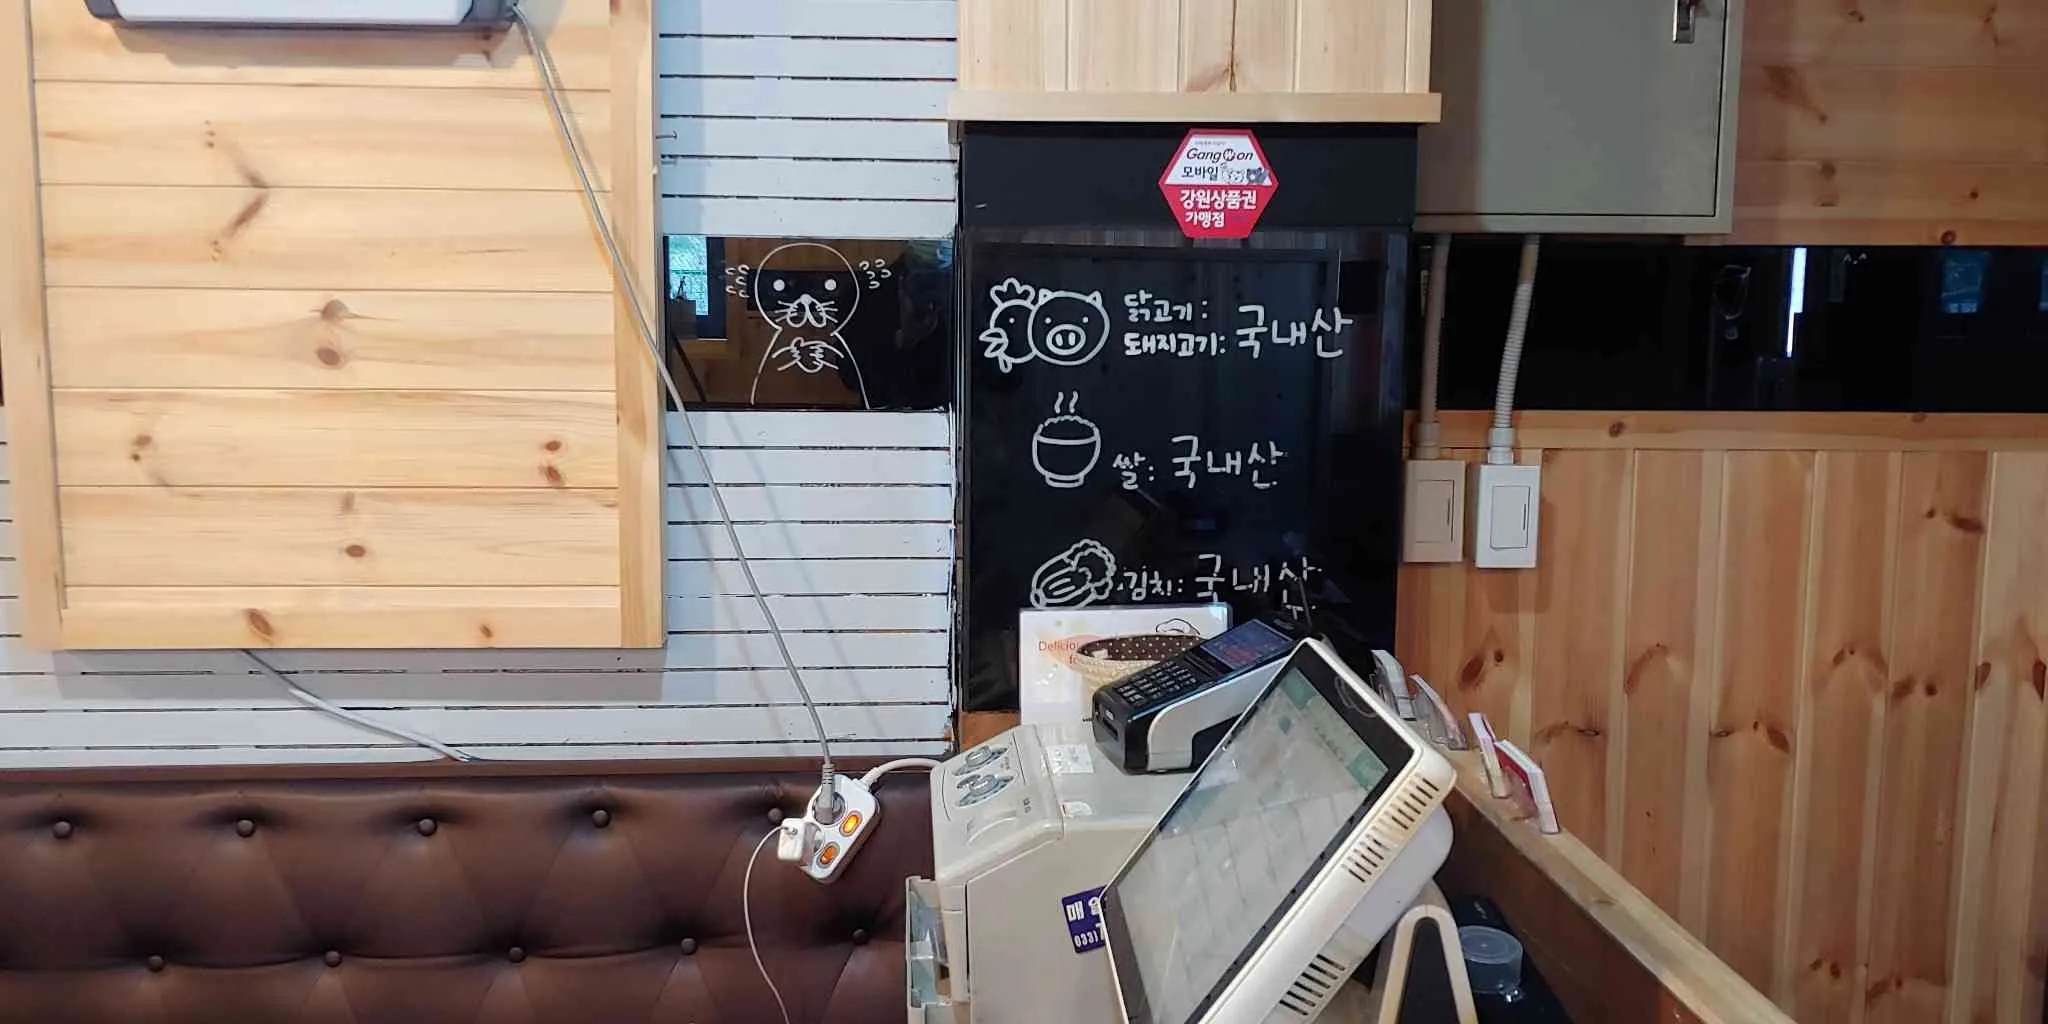 GangWon
모바일
강원상품권
가맹점
닭고기:
돼지고기: 국내산
쌀: 국내산
김치: 국내산
033)